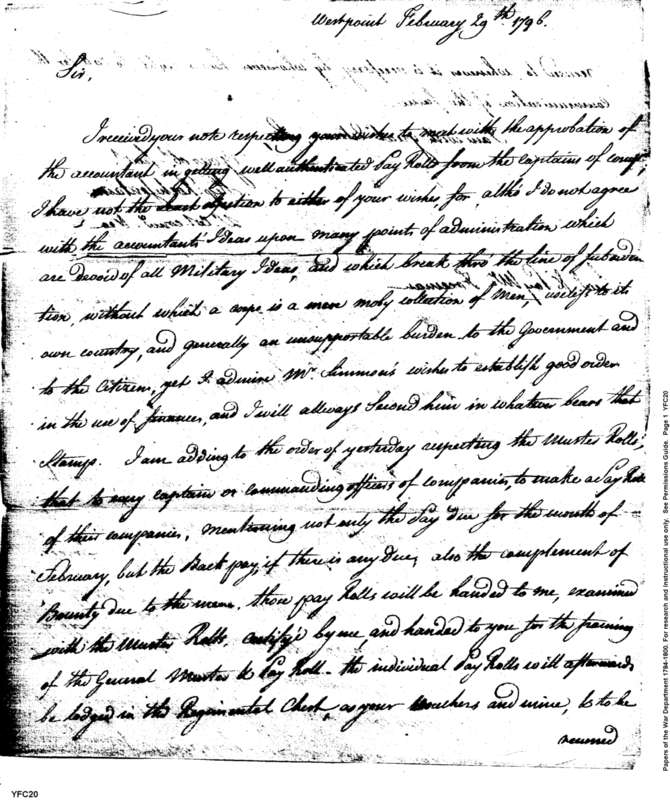 Westpoint February 29th. 1796.
Sir,
I received your note respecting your wishes to meet with the approbation of
the accountant in getting well authenticated Pay Rolls from the Captains of Comps,
I have not the least objection to either of your wishes for altho I do not agree
with the accountants Ideas upon many points of administration which
are devoid of all Military Ideas, and which break thro the line of subordin
tion, without which a corps is a mere moby collection of Men, useless to its
own country, and generally an unsupportable burden to the Government and
to the Citizens, yet I admire Mr. Simmons's wishes to establish good order
in the use of finances, and I will allways Second him in whatever bears that
Stamps. I am adding to the order of yesterday respecting the Muster Rolls,
that to every captain or commanding officers of companies, to make a Pay Roll
of their companies, mentioning not only the Pay due for the month of
February, but the Back pay, if there is any due, also the complement of
Bounty due to the mens, those pay Rolls will be handed to me, examined
with the Muster Rolls, certify'd by me and handed to you for the framing
of the General Muster & Pay Roll - the individual Pay Rolls will afterwards
be lodged in the Regimental Chest, as your Vouchers and mine, & to be
YFC20
Papers of the War Department 1784-1800. For research and instructional use only. See Permissions Guide. Page 1 YFC20